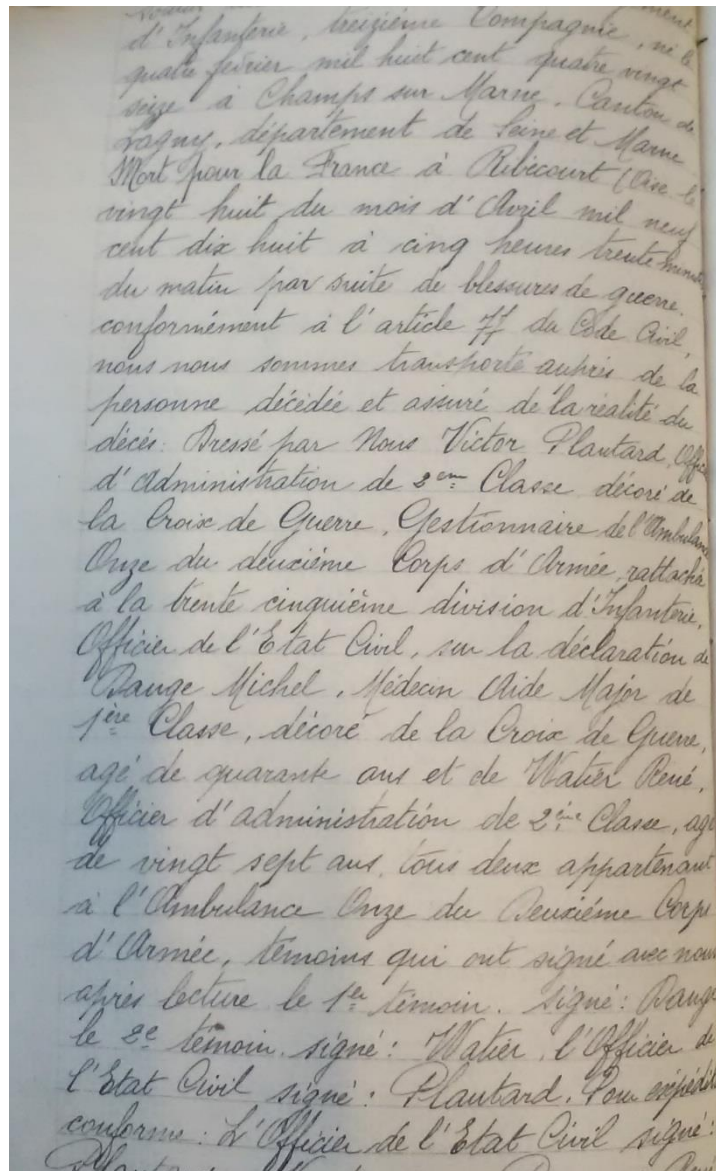 d'Infanterie, treizième Compagnie, né le
quatre février mil huit cent quatre vingt
seize à Champs sur Marne, Canton de
Lagny, département de Seine et Marne
Mort pour la France à Ribécourt (Oise le
vingt huit du mois d'Avril mil neuf
cent dix huit à cinq heures trente minutes
du matin par suite de blessures de guerre.
conformément à l'article 77 du Code Civil,
nous nous sommes transporté auprès de la
personne décédée et assuré de la réalité du
décès: Dressé par Nous Victor Plautard, Offici
d'Administration de 2eme Classe, décoré de
la Croix de Guerre, Gestionnaire de l'Ambulance
Onze du deuxième Corps d'Armée, rattaché
à la trente cinquième division d'Infanterie,
Officier de l'Etat Civil, sur la déclaration de
Dauge Michel, Médecin Aide Major de
1ère Classe, décoré de la Croix de Guerre,
agé de quarante ans et de Watier René,
Officier d'administration de 2ème Classe, agé
de vingt sept ans, tous deux appartenant
à l'Ambulance Onze du Deuxième Corps
d'Armée, témoins qui ont signé avec nous
après lecture le 1er témoin. signé: Dauge
le 2e témoin. signé: Watier, l'Officier de
l'Etat Civil signé: Plautard. Pour expédit
conforme: L'Officier de l'Etat Civil signé: